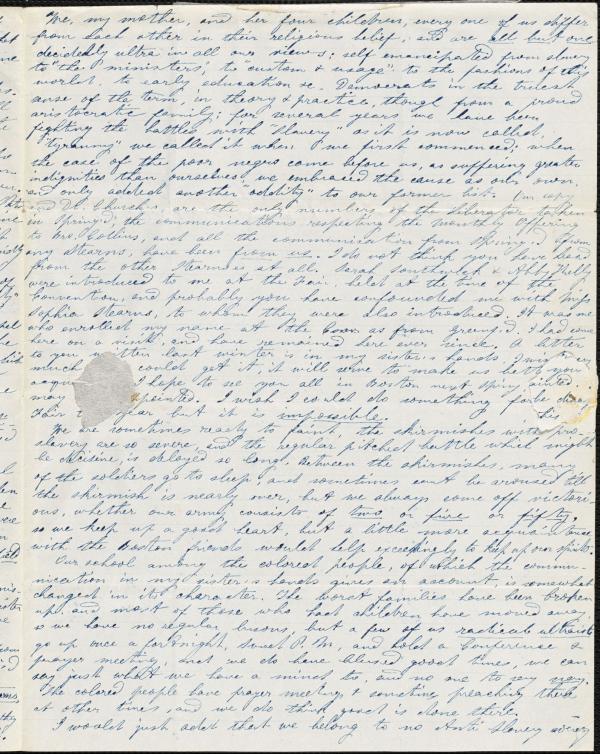 We, my mother, and her four children, every one of us differ
from each other in their religious belief, and are all but one
decidedly ultra in all our views; self emancipated from slavery
to "the ministers", to "custom & usage" to the fashions of this
world, to early education &c. Democrats in the truest
sense of the term, in theory & practice, though from a proud
aristocratic family; for several years we have been
fighting the battles with Slavery" as it is now called,
"tyranny" we called it when we first commenced; when
the case of the poor negro came before us, as suffering greater
indignities than ourselves we embraced the cause as our own,
and only added another "oddity" to our former list.
and Dr. Church's, are the only numbers of the liberator taken
in Spring'd; the communications respecting the monthly offering
to Mr. Collins, and all the communication from Spring'd from
any Stearns, have been from us. I do not think you have heard
from the other Stearnses at all. Sarah Southwick & Abby Kelly
were introduced to me at the Fair, held at the time of the
Convention, and probably you have confounded me with Miss
Sophia Stearns, to whom they were also introduced. It was me
who enrolled my name at the Con. as from I had come
here on a visit and have remained here ever since. A letter
to you written last winter is in my sister's hands. I wish very
much could get it it will serve to make us better
acqu I hope to see you all in Boston next Spring
may pointed. I wish I could do something for the
Fair year but it is impossible.
We are sometimes ready to faint, the skirmishes with pro
slavery are so severe, and the regular pitched battle which might
be decisive, is delayed so long. Between the skirmishes, many
of the soldiers go to sleep, and sometimes cant be aroused till
the skirmish is nearly over, but we always come off victori-
ous, whether our army consists of two, or five or fifty,
so we keep up a good heart, but a little more acquaintance
with the Boston friends would help exceedingly to keep up our spirits.
Our school among the colored people, of which the commu-
nication in my sister's hands gives an account, is somewhat
changed in its character. The worst families have been broken
up, and most of those who had children have moved away
so we have no regular lessons, but a few of us radicals ultraists
go up once a fortnight, P.M, and hold a Conference &
prayer meeting, and we do have blessed good times, we can
say just what we have a mind to, and no one to say nay.
The colored people have prayer meeting, & someting preaching there
at other times, and we do think good is done there.
I would just add that we belong to no Anti Slavery society